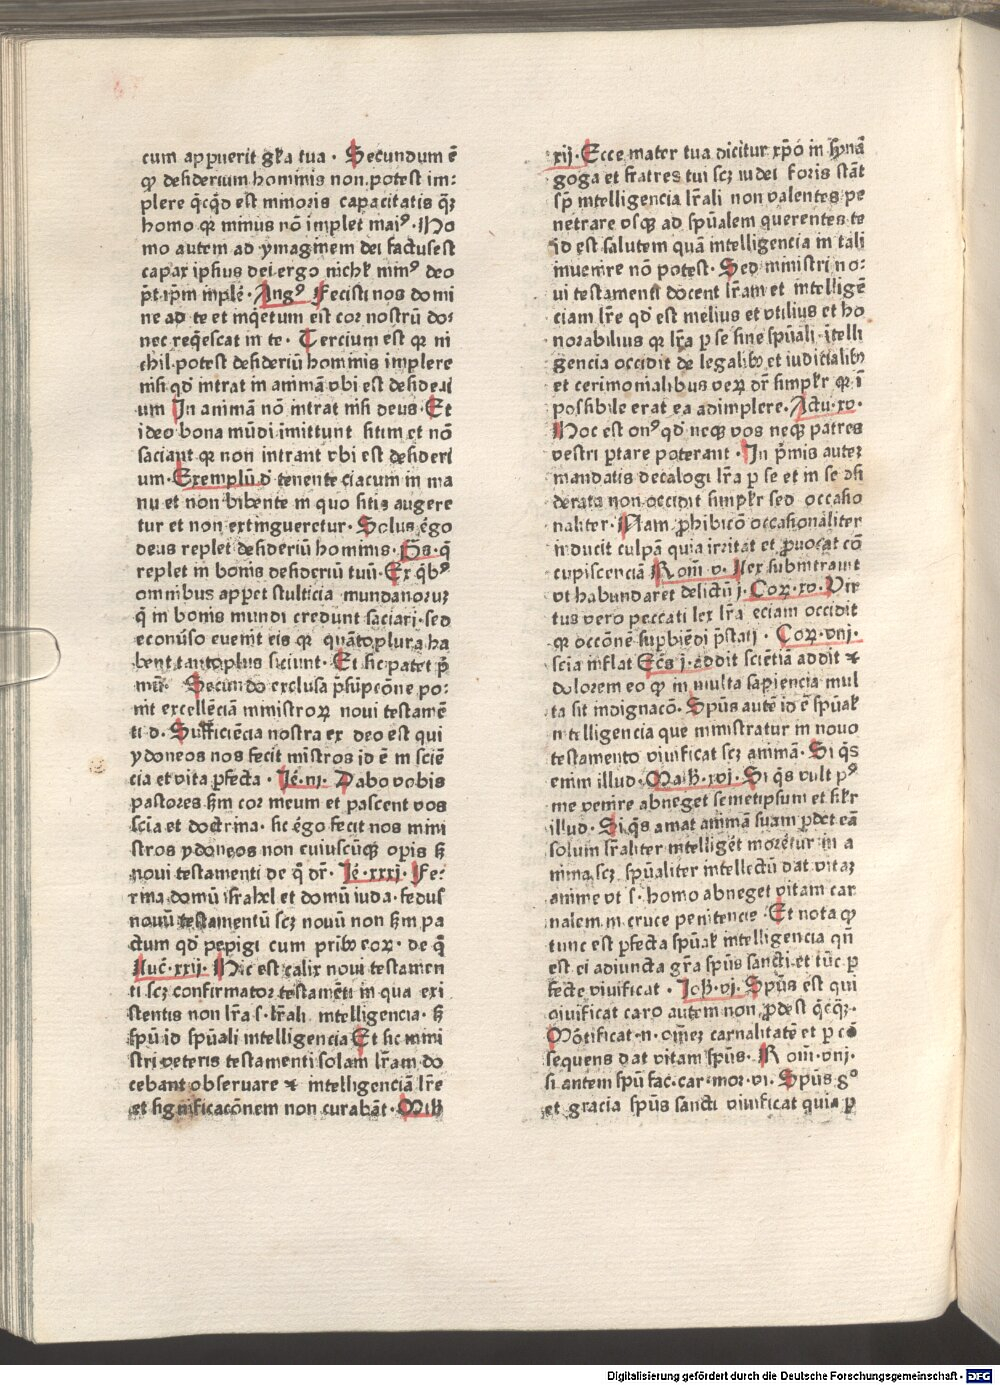 cum appuerit gl̄ia tua · Secundum ē
ꝙ desiderium hominis non potest im⸗
plere q̄cq̄d est minoris capacitatis q̄ꝫ
homo qꝛ minus nō implet maiꝰ · Ho
mo autem ad ymaginem dei factus est
capax ipsius dei ergo nichil minꝰ deo
p̄t ip̄m implē · Augꝰ Fecisti nos domi
ne ad te et inq̄etum est cor nostrū do⸗
nec req̄escat in te · Tercium est qꝛ ni
chil potest desideriū hominis implere
nisi qd̄ intrat in animā vbi est desideri
um In animā nō intrat nisi deus · Et
ideo bona mūdi īmittunt sitim et nō
saciant qꝛ non intrant vbi est desideri
um · Exemplū d̄ tenente ciacum in ma
nu et non bibente in quo sitis augere
tur et non extingueretur · Solus ḡo
deus replet desideriū hominis · p̄s · q̄
replet in bonis desideriū tuū · Ex q̄bꝰ
omnibus appet stulticia mundanoruꝫ
q̄ in bonis mundi credunt saciari · sed
econūso euenit eis qꝛ quāto plura ha
bent tanto plus siciunt · Et sic patet p̄
mū · Secundo exclusa p̄sūpcōne po⸗
nit excellēciā ministroꝝ noui testamē
ti d · Sufficiēcia nostra ex deo est qui
ydoneos nos fecit mīstros id ē in sciē
cia et vita ꝑfecta · Ie · iij · Dabo vobis
pastores s̄m cor meum et pascent vos
scia et doctrina · sic ḡo fecit nos mini
stros ydoneos non cuiuscūqꝫ opis sꝫ
noui testamenti de q̄ dr̄ · Ie · xxxj · Fe⸗
riā domū israhel et domū iuda · fedus
nouū testamentū scꝫ nouū non s̄m pa
ctum qd̄ pepigi cum prībꝫ eoꝝ · de q̄
Luc̄ · xxij · Hic est calix noui testamen
ti scꝫ confirmator testamēti in qua exi
stentis non lr̄a s · lr̄ali intelligencia · sꝫ
spū id spūali intelligencia Et sic mini
stri veteris testamenti solam lr̄am do
cebant obseruare ⁊ intelligenciā lr̄e
et significacōnem non curabāt · Mth
xij · Ecce mater tua dicitur xp̄o in syna
goga et fratres tui scꝫ iudei foris stāt
sꝑ intelligencia lr̄ali non valentes pe
netrare vsqꝫ ad spūalem querentes te
id est salutem quā intelligencia in tali
inuenire nō potest · Sed ministri no⸗
ui testamenti docent lr̄am et intelligē
ciam lr̄e qd̄ est melius et vtilius et ho
norabilius qꝛ lr̄a ꝑ se sine spūali ītelli
gencia occidit de legalibꝫ et iudicialibꝫ
et cerimonialibus veꝝ dr̄ simplr̄ qꝛ ī
possibile erat ea adimplere · Actu · xv ·
Hoc est onꝰ qd̄ neqꝫ vos neqꝫ patres
vestri ꝑtare poterant · In p̄mis auteꝫ
mandatis decalogi lr̄a ꝑ se et in se cōsi
derata non occidit simplr̄ sed occasio
naliter · Nam ꝓhibicō occasionaliter
inducit culpā quia irritat et ꝓuocat cō
cupiscenciā Rom̄ · v · Lex subintrauit
vt habundaret delictū j · Coꝝ · xv · Vir
tus vero peccati lex lr̄a eciam occidit
qꝛ occōnē supbiēdi p̄stati · Coꝝ · viij ·
scia inflat Ecc̄s j · addit sciētiā addit ⁊
dolorem eo ꝙ in multa sapiencia mul
ta sit indignacō · Spūs autē id ē spūalꝭ
intelligencia que ministratur in nouo
testamento viuificat scꝫ animā · Si q̄s
enim illud · Math · xvj · Si q̄s vult pꝰ
me venire abneget semetipsum et silr̄
illud · Si q̄s amat animā suam ꝑdet eā
solum lr̄aliter intelligēt morētur in a
nima scꝫ spūaliter intellectū dat vitaꝫ
anime vt s · homo abneget vitam car
nalem in cruce penitencie · Et nota ꝙ
tunc est ꝑfecta spūalꝭ intelligencia qn̄
est ei adiuncta gr̄a spūs sancti et tūc ꝑ
fecte viuificat · Ioh · vj · Spūs est qui
viuificat caro autem non ꝓdest q̄cq̄ꝫ ·
Mōtificat · n · oīeꝫ carnalitatē et ꝑ cō
sequens dat vitam spūs · Rom̄ · viij ·
si autem spū fac · car · mor · vi · Spūs gͦ
et gracia spūs sancti viuificat quia ꝑ
Digitalisierung gefördert durch die Deutsche Forschungsgemeinschaft - DFG